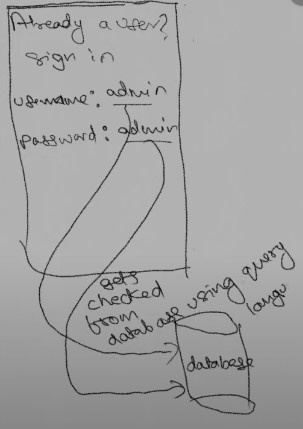 Already a user?
sign in
username: admin
password: admin
gets
checked
from
database using query
langu
database